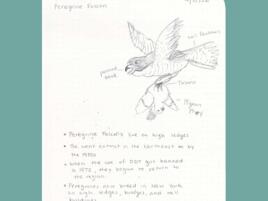 Peregrine Falcon
Tail Feathers
Talons
Pigeon
Prey
• Peregrine Falcons live on high ledges
• They went extinct in the northeast by
the 1960s
• When the use of DDT got banned
in 1972, they began to return to
the region.
• Peregrines also breed in New York
on high ledges, bridges, and tall
buildings